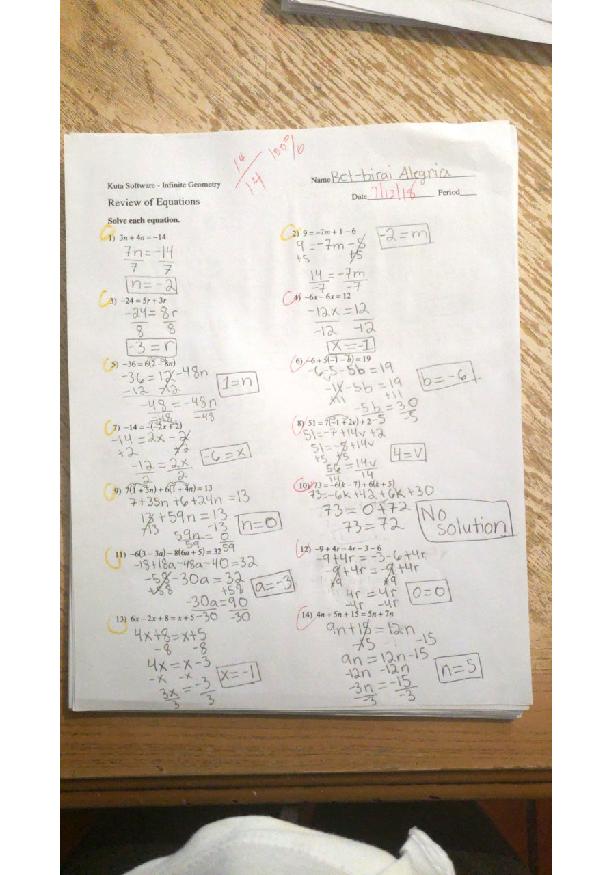 14
14
100%
Kuta Software - Infinite Geometry
Name Bet-birai Alegria
Review of Equations
Date 7/12/18 Period
Solve each equation.
1) 3n + 4n = -14
7n = -14
7 7
n = -2
2) 9 = -7m + 1 - 6
-2 = m
+5 +5
14 = -7m
-7 -7
3) -24 = 5r + 3r
-24 = 8r
8 8
-3 = r
4) -6x - 6x = 12
-12x = 12
-12 -12
x = -1
-36 = 12 - 48n
-12 -12
1 = n
-48 = -48n
-48 -48
6) -6 + 5(-1 - b) = 19
-6-5-5b = 19
b = -6
-11 -5b = 19
+11 +11
-5b = 30
-5 -5
-14 = 2x - 2
+2 +2
-6 = x
-12 = 2x
2 2
8) 51 = 7(-1 + 2v) + 2 - 3
4 = v
56 = 14v
14 14
9) 7(1 + 5n) + 6(1 + 4n) = 13
7 + 35n + 6 + 24n = 13
13 + 59n = 13
-13 -13
n = 0
59n = 0
59 59
10) 73 = -6(k - 7) + 6(k + 5)
73 = -6k + 42 + 6k + 30
73 = 0 + 72
73 = 72
No
solution
11) -6(3 - 3a) - 8(6a + 5) = 32
-18 + 18a - 48a - 40 = 32
-58 - 30a = 32
+58 +58
a = -3
-30a = 90
-30 -30
-9 + 4r = -3 - 6 + 4r
-9 + 4r = -9 + 4r
+9 +9
4r = 4r
-4r -4r
0 = 0
13) 6x - 2x + 8 = x + 5
4x + 8 = x + 5
-8 -8
4x = x - 3
-x -x
x = -1
3x = -3
3 3
14) 4n + 5n + 15 = 5n + 7n
9n + 15 = 12n
-15 -15
9n = 12n - 15
-12n -12n
n = 5
-3n = -15
-3 -3